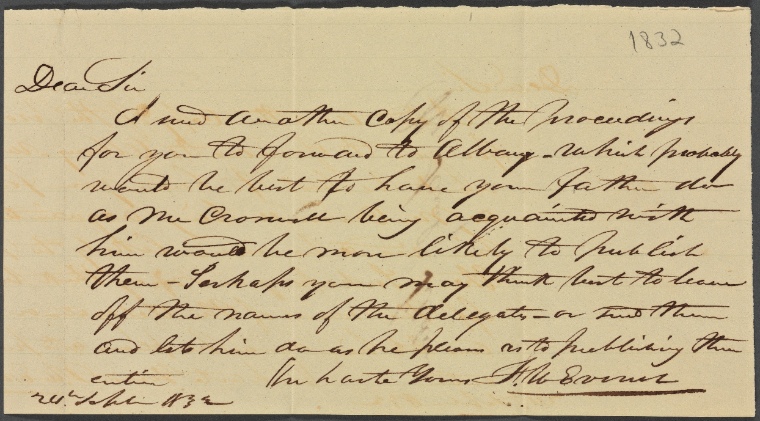 1832
Dear Sir
I send another Copy of the proceedings
for you to forward to Albany - which probably
would be best to have your father do
as Mr Croswell being acquainted with
him would be more likely to publish
them - Perhaps you may think best to leave
off the names of the delegates - or send them
and let him do as he pleases as to publishing them
entire In haste Yours
24th Sept 1832